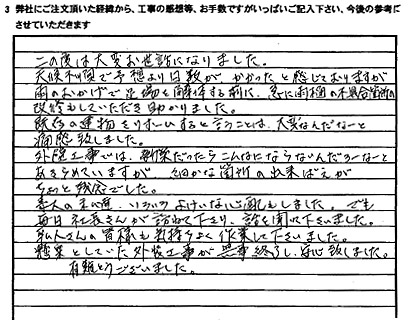 3 弊社にご注文頂いた経緯から、工事の感想等、お手数ですがいっぱいご記入下さい、今後の参考に
させていただきます
この度は大変お世話になりました。
天候不順で予想より日数がかかったと感じておりますが
雨のおかげで足場を解体する前に、急に雨樋の不具合箇所の
改修もしていただき助かりました。
既存の建物をリホームすると言うことは、大変なんだなーと
痛感致しました。
外壁工事では、新築だったらこんなにならないんだろーなーと
あきらめていますが、細かな箇所の出来ばえが
ちょっと残念でした。
素人の私 いろいろ よけいな心配もしました。でも
毎日社長さんが訪ねて下さり、話を聞いて下さいました。
職人さんの皆様も気持ちよく作業して下さいました。
懸案としていた外装工事が無事終了し、安心致しました。
有難とうございました。